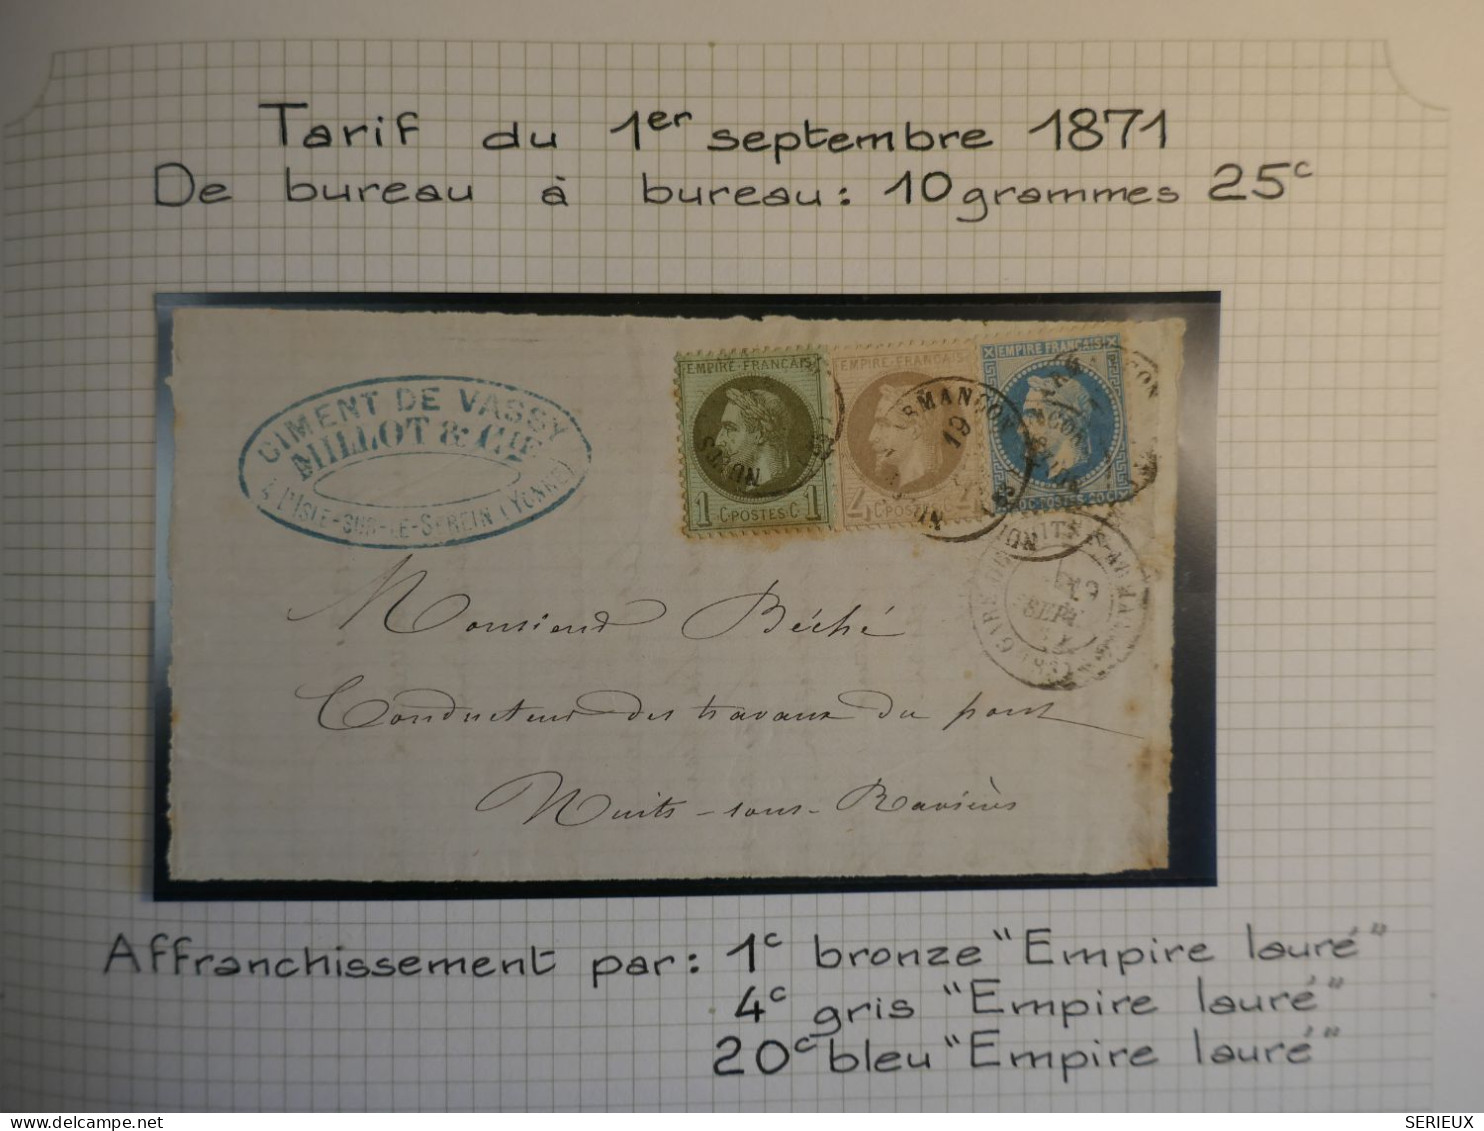 Tarif du 1er septembre 1871
De bureau à bureau: 10 grammes 25c
CIMENT DE VASSY
MILLOT & CIE
A L'ISLE-SUR-LE-SEREIN (YONNE)
EMPIRE FRANÇAIS
1 C POSTES C 1
EMPIRE FRANÇAIS
4 C POSTES
EMPIRE FRANÇAIS
POSTES 20 C
ARMANÇON
19
NUITS
19
SEPT
Monsieur Béché
Conducteur des travaux du pont
Nuits-sous-Ravières
Affranchissement par: 1c bronze "Empire lauré"
4c gris "Empire lauré"
20c bleu "Empire lauré"
delcampe.net
SERIEUX